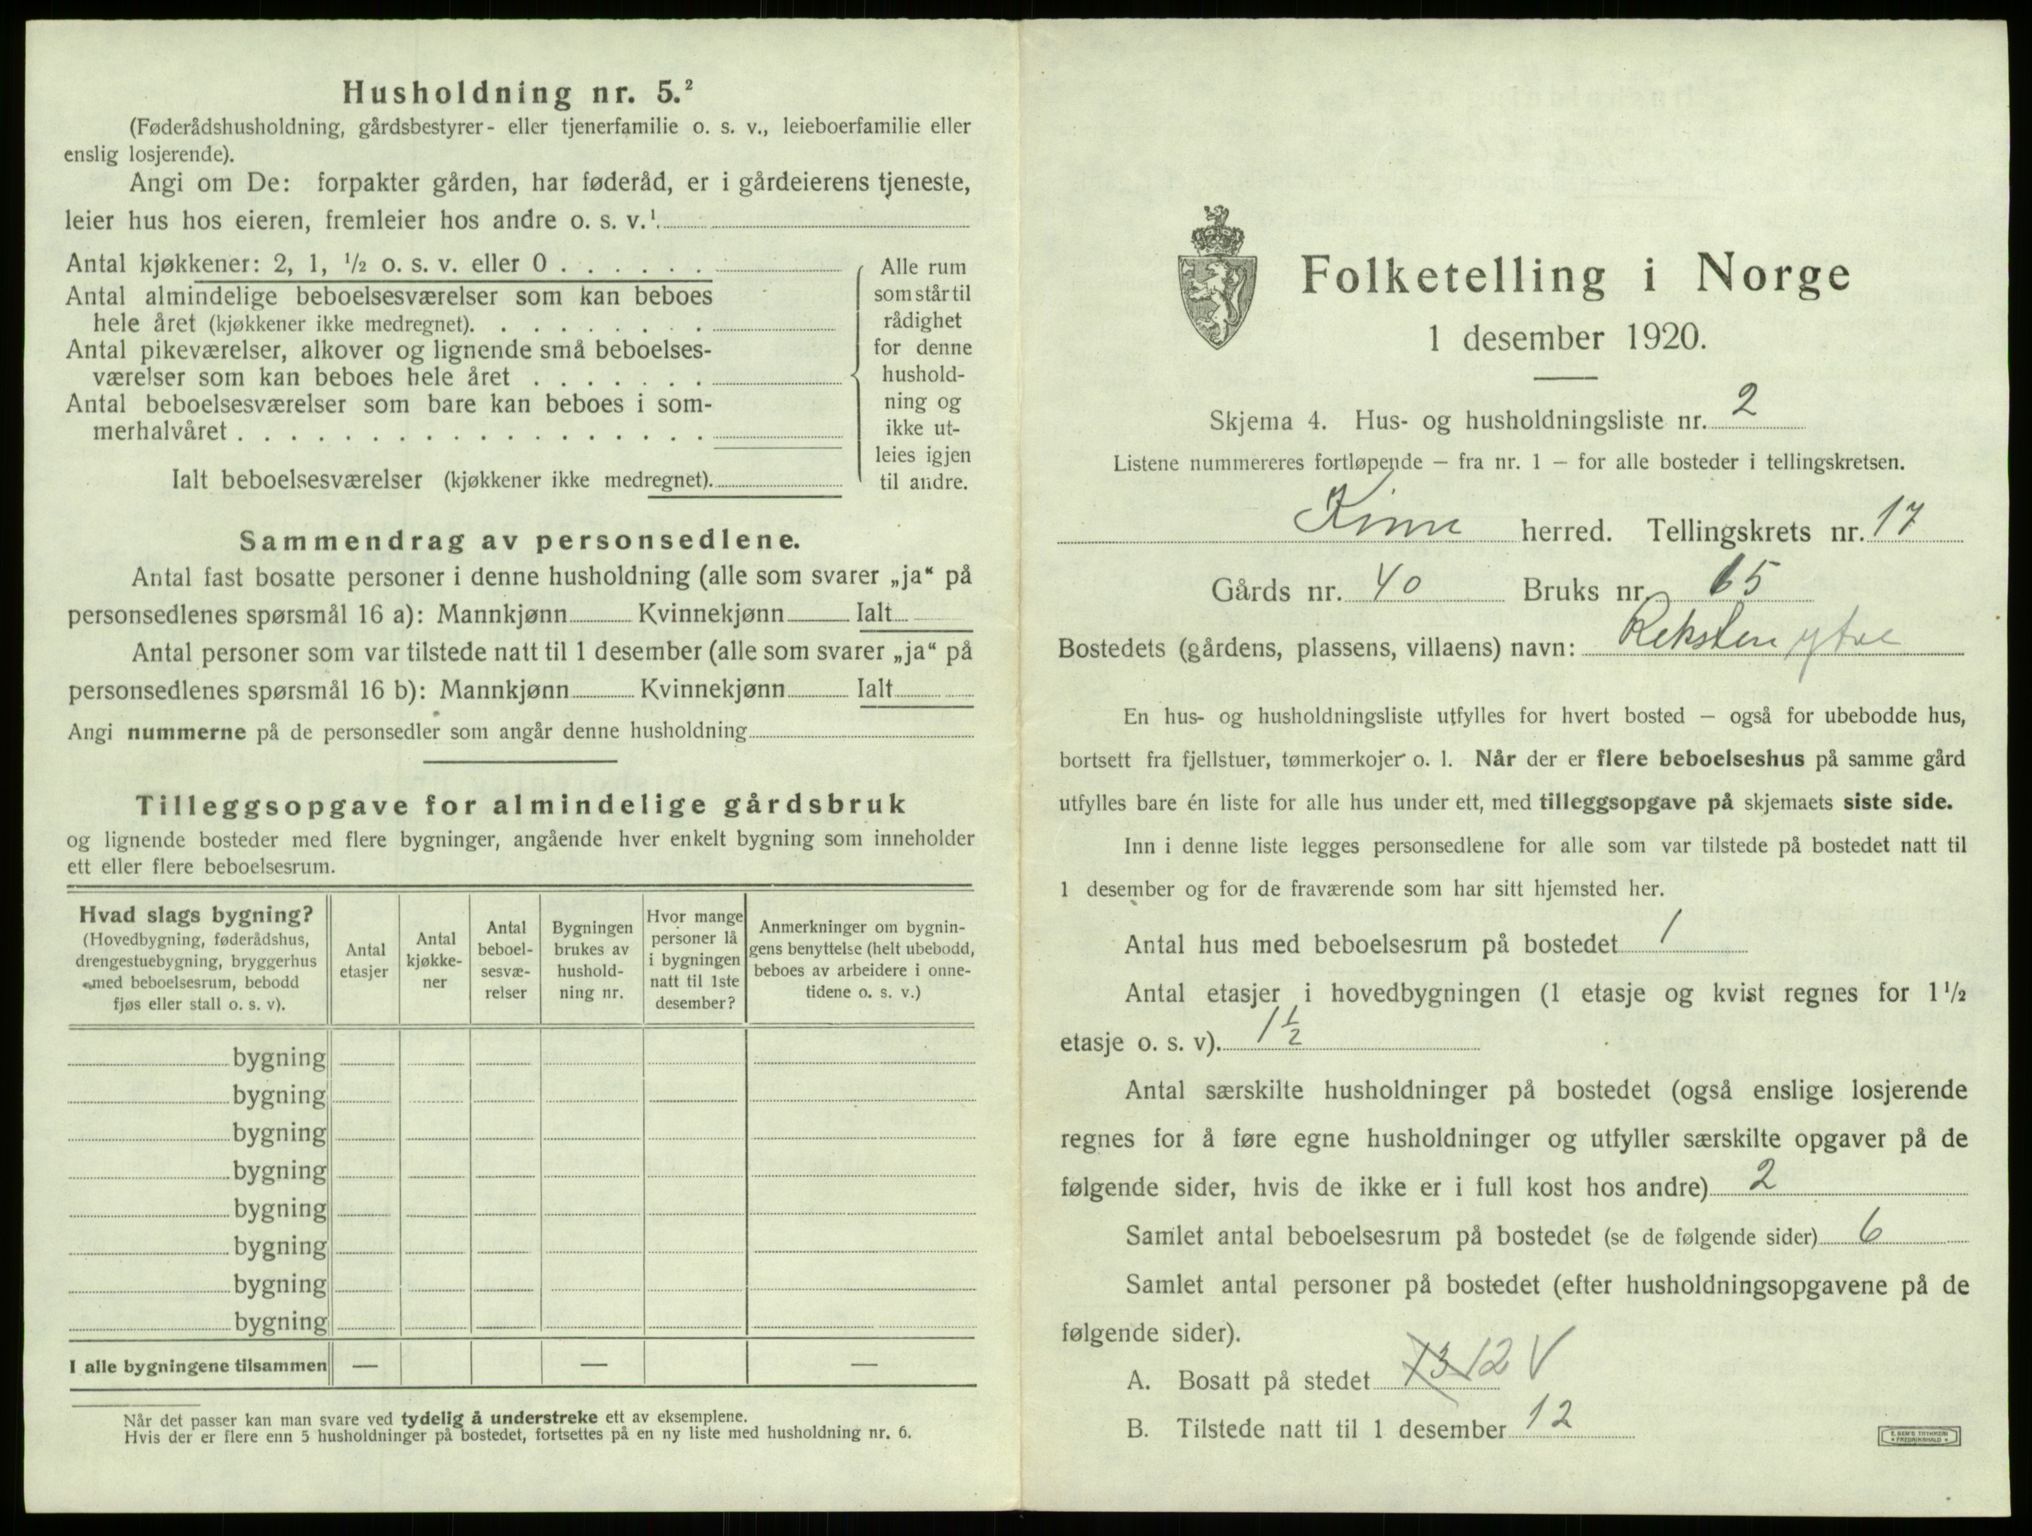 Husholdning nr. 5.²
(Føderådshusholdning, gårdsbestyrer- eller tjenerfamilie o. s. v., leieboerfamilie eller
enslig losjerende).
Angi om De: forpakter gården, har føderåd, er i gårdeierens tjeneste,
leier hus hos eieren, fremleier hos andre o. s. v.¹
Antal kjøkkener: 2, 1, ½ o. s. v. eller 0 . . . . . .
Antal almindelige beboelsesværelser som kan beboes
hele året (kjøkkener ikke medregnet). . . . . . . . .
Antal pikeværelser, alkover og lignende små beboelses-
værelser som kan beboes hele året . . . . . . .
Antal beboelsesværelser som bare kan beboes i som-
merhalvåret . . . . . . . . . . . . . . . . . .
Ialt beboelsesværelser (kjøkkener ikke medregnet).
Alle rum
som står til
rådighet
for denne
hushold-
ning og
ikke ut-
leies igjen
til andre.
Sammendrag av personsedlene.
Antal fast bosatte personer i denne husholdning (alle som svarer „ja“ på
personsedlenes spørsmål 16 a): Mannkjønn Kvinnekjønn Ialt
Antal personer som var tilstede natt til 1 desember (alle som svarer „ja“ på
personsedlenes spørsmål 16 b): Mannkjønn Kvinnekjønn Ialt
Angi nummerne på de personsedler som angår denne husholdning
Tilleggsopgave for almindelige gårdsbruk
og lignende bosteder med flere bygninger, angående hver enkelt bygning som inneholder
ett eller flere beboelsesrum.
Hvad slags bygning?
(Hovedbygning, føderådshus,
drengestuebygning, bryggerhus
med beboelsesrum, bebodd
fjøs eller stall o. s. v).
Antal
etasjer
Antal
kjøkke-
ner
Antal
beboel-
sesvæ-
relser
Bygningen
brukes av
hushold-
ning nr.
Hvor mange
personer lå
i bygningen
natt til 1ste
desember?
Anmerkninger om bygnin-
gens benyttelse (helt ubebodd,
beboes av arbeidere i onne-
tidene o. s. v.)
bygning
bygning
bygning
bygning
bygning
bygning
bygning
bygning
I alle bygningene tilsammen — — —
Når det passer kan man svare ved tydelig å understreke ett av eksemplene.
Hvis der er flere enn 5 husholdninger på bostedet, fortsettes på en ny liste med husholdning nr. 6.
Folketelling i Norge
1 desember 1920.
Skjema 4. Hus- og husholdningsliste nr. 2
Listene nummereres fortløpende – fra nr. 1 – for alle bosteder i tellingskretsen.
Kinn herred. Tellingskrets nr. 17
Gårds nr. 40 Bruks nr. 65
Bostedets (gårdens, plassens, villaens) navn: Reksten ytre
En hus- og husholdningsliste utfylles for hvert bosted – også for ubebodde hus,
bortsett fra fjellstuer, tømmerkojer o. l. Når der er flere beboelseshus på samme gård
utfylles bare én liste for alle hus under ett, med tilleggsopgave på skjemaets siste side.
Inn i denne liste legges personsedlene for alle som var tilstede på bostedet natt til
1 desember og for de fraværende som har sitt hjemsted her.
Antal hus med beboelsesrum på bostedet 1
Antal etasjer i hovedbygningen (1 etasje og kvist regnes for 1 ½
etasje o. s. v). 1 ½
Antal særskilte husholdninger på bostedet (også enslige losjerende
regnes for å føre egne husholdninger og utfyller særskilte opgaver på de
følgende sider, hvis de ikke er i full kost hos andre) 2
Samlet antal beboelsesrum på bostedet (se de følgende sider) 6
Samlet antal personer på bostedet (efter husholdningsopgavene på de
følgende sider).
A. Bosatt på stedet 13 12 V
B. Tilstede natt til 1 desember 12
E. SEM'S TRYKKERI
FREDRIKSHALD